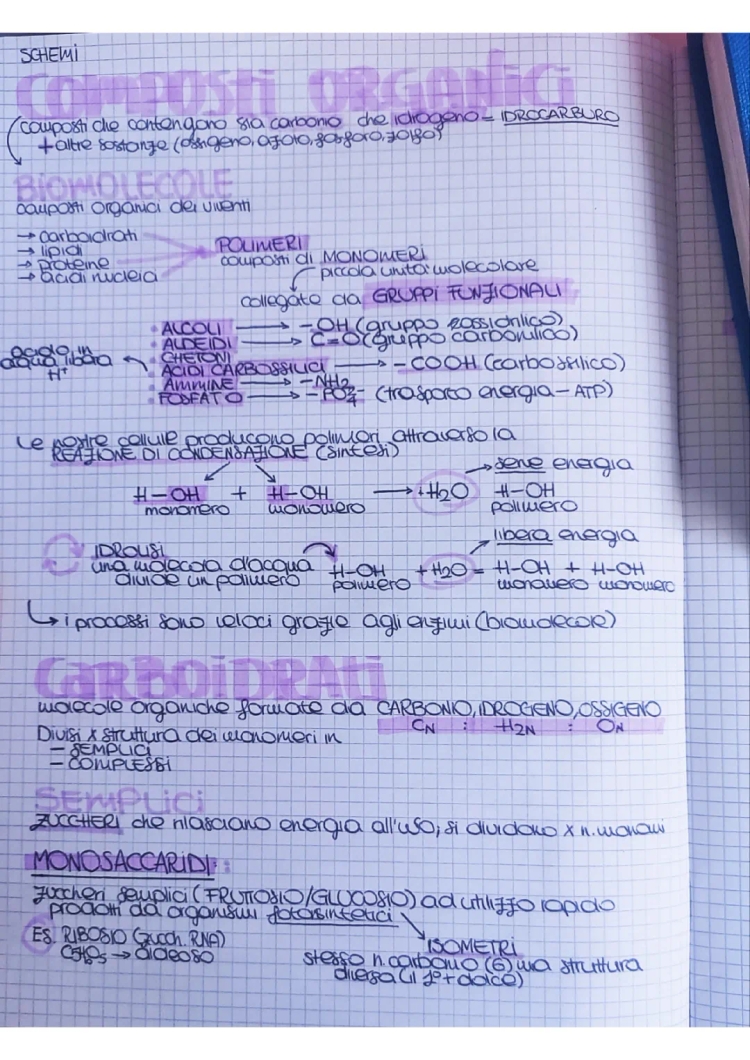 SCHEMi
COMPOSTi ORGANiCi
composti che contengono sia carbonio che idrogeno = IDROCARBURO
+ altre sostanze (ossigeno, azoto, fosforo, zolfo)
BiOMOLECOLE
composti organici dei viventi
→ carboidrati
→ lipidi
→ proteine
→ acidi nucleia
POLIMERI
composti di MONOMERI
piccola unità molecolare
collegate da GRUPPI FUNZIONALI
• ALCOLI → -OH (gruppo ossidrilico)
• ALDEIDI → C=O (gruppo carbonilico)
• CHETONI
• ACIDI CARBOSSILICI → -COOH (carbossilico)
acido in
acqua libera
H⁺
• AMMINE → -NH₂
• FOSFATO → -PO₄²⁻ (trasporto energia - ATP)
Le nostre cellule producono polimeri attraverso la
REAZIONE DI CONDENSAZIONE (sintesi)
→ serve energia
H-OH + H-OH → +H₂O H-OH
monomero monomero polimero
→ libera energia
IDROLISI
una molecola d'acqua
divide un polimero
H-OH + H₂O = H-OH + H-OH
polimero monomero monomero
↳ i processi sono veloci grazie agli enzimi (biomolecole)
CARBOiDRATi
molecole organiche formate da CARBONIO, IDROGENO, OSSIGENO
CN : H2N : ON
Divisi x struttura dei monomeri in
- SEMPLICI
- COMPLESSI
SEMPLiCi
ZUCCHERI che rilasciano energia all'uso, si dividono x n. monomi
MONOSACCARIDI:
zuccheri semplici (FRUTTOSIO/GLUCOSIO) ad utilizzo rapido
prodotti da organismi fotosintetici
ES. RIBOSIO (zucch. RNA)
C₅H₁₀O₅ → aldeoso
ISOMETRI
stesso n. carbonio (6) ma struttura
diversa (il 1° + dolce)